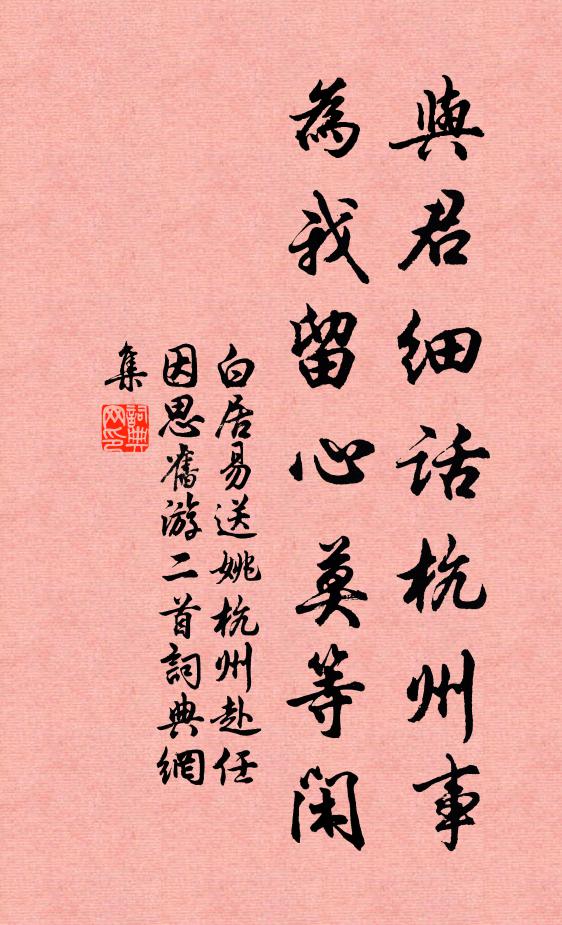 與君細話杭州事
為我留心莫等閑
白居易送姚杭州赴任
因思舊游二首詞典網
集
詞典
网印